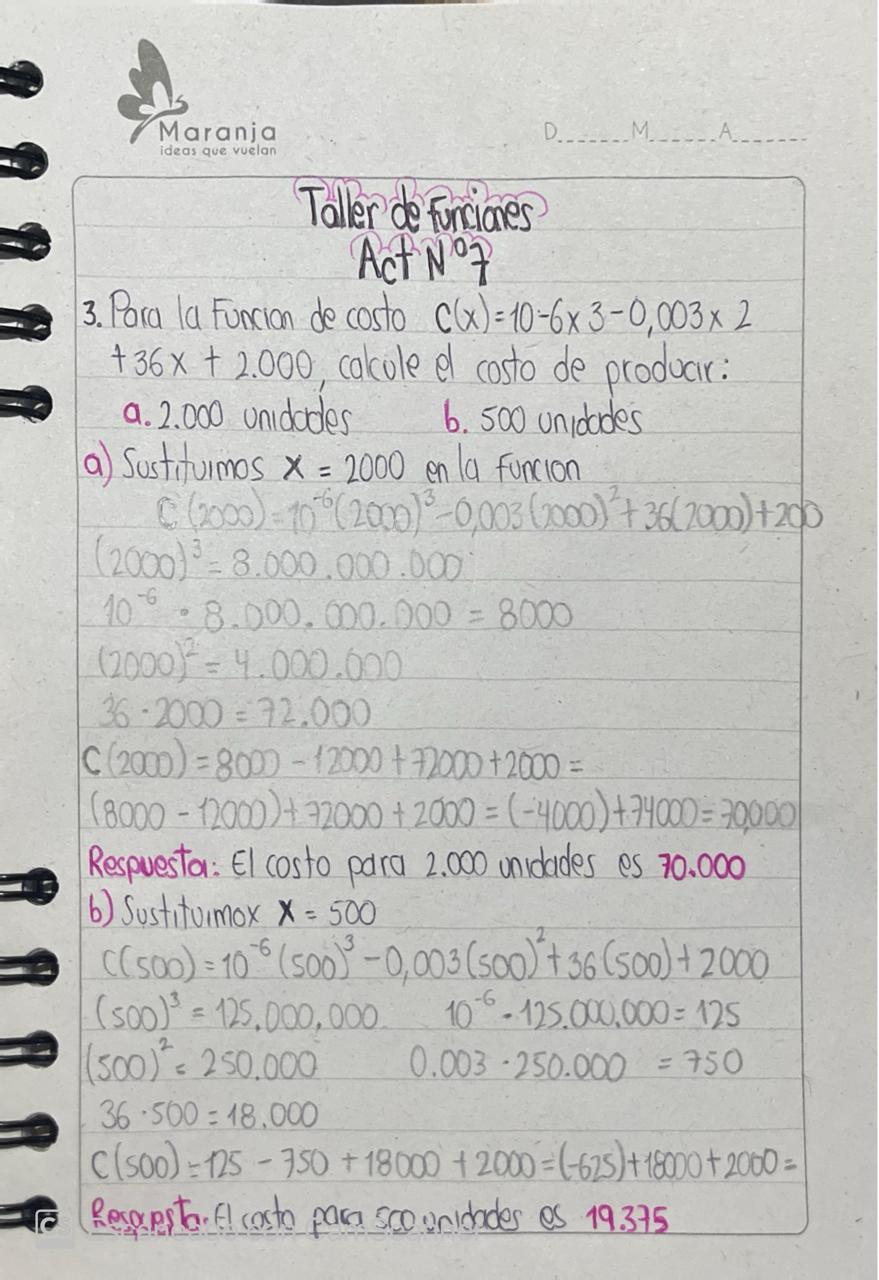 Maranja
ideas que vuelan
D.......M......A.......
Taller de funciones
Act N°7
3. Para la Funcion de costo C(x)=10-6x3-0,003x2
+36x + 2.000, calcule el costo de producir:
a. 2.000 unidades b. 500 unidades
a) Sustituimos x = 2000 en la Funcion
C(2000)=10⁻⁶(2000)³-0,003(2000)²+36(2000)+200
(2000)³ = 8.000.000.000
10⁻⁶ · 8.000.000.000 = 8000
(2000)² = 4.000.000
36 · 2000 = 72.000
C(2000) = 8000 - 12000 + 72000 + 2000 =
(8000 - 12000) + 72000 + 2000 = (-4000) + 74000 = 70,000
Respuesta: El costo para 2.000 unidades es 70.000
b) Sustituimox x = 500
C(500) = 10⁻⁶ (500)³ - 0,003 (500)² + 36 (500) + 2000
(500)³ = 125,000,000 10⁻⁶ · 125.000,000 = 125
(500)² = 250.000 0.003 · 250.000 = 750
36 · 500 = 18.000
C(500) = 125 - 750 + 18000 + 2000 = (-625) + 18000 + 2000 =
Respuesta: El costo para 500 unidades es 19.375